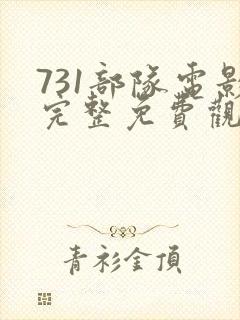 731部隊電影
完整免費觀
青衫金頂